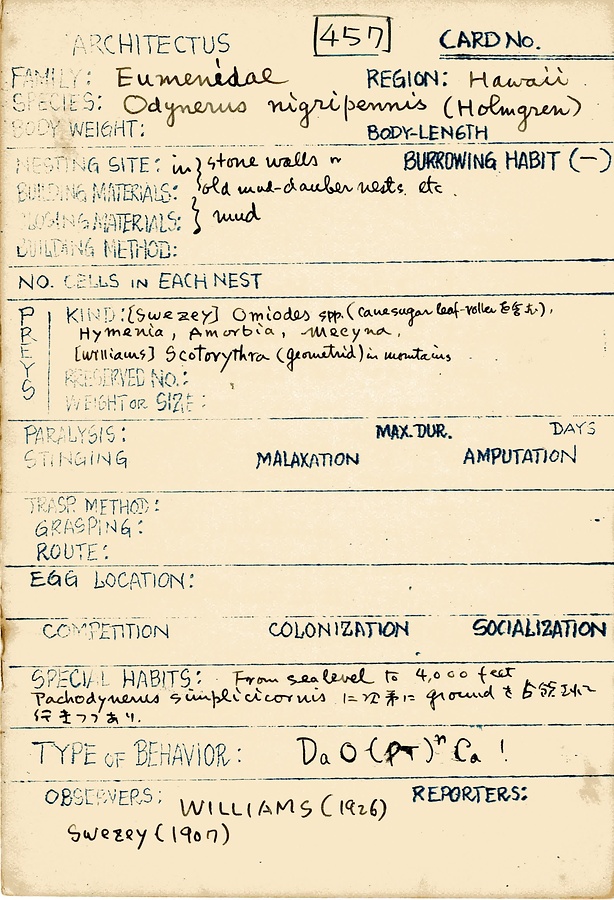 ARCHITECTUS 457 CARD NO.
FAMILY: Eumenidae REGION: Hawaii
SPECIES: Odynerus nigripennis (Holmgren)
BODY WEIGHT: BODY-LENGTH
NESTING SITE: in } stone walls or BURROWING HABIT (-)
BUILDING MATERIALS: old mud-dauber nests. etc.
CLOSING MATERIALS: } mud
BUILDING METHOD:
NO. CELLS IN EACH NEST
PREYS
KIND: [Swezey] Omiodes spp. (canesugar leaf-roller),
Hymenia, Amorbia, Mecyna,
[Williams] Scotorythra (geometrid) in mountains
PRESERVED NO.:
WEIGHT OR SIZE:
PARALYSIS: MAX. DUR. DAYS
STINGING MALAXATION AMPUTATION
TRASP. METHOD:
GRASPING:
ROUTE:
EGG LOCATION:
COMPETITION COLONIZATION SOCIALIZATION
SPECIAL HABITS: From sea level to 4,000 feet
Pachodynerus simplicicornis に次第に ground を
行きつつあり.
TYPE OF BEHAVIOR: Da O (PT)ⁿ Ca !
OBSERVERS: WILLIAMS (1926) REPORTERS:
Swezey (1907)